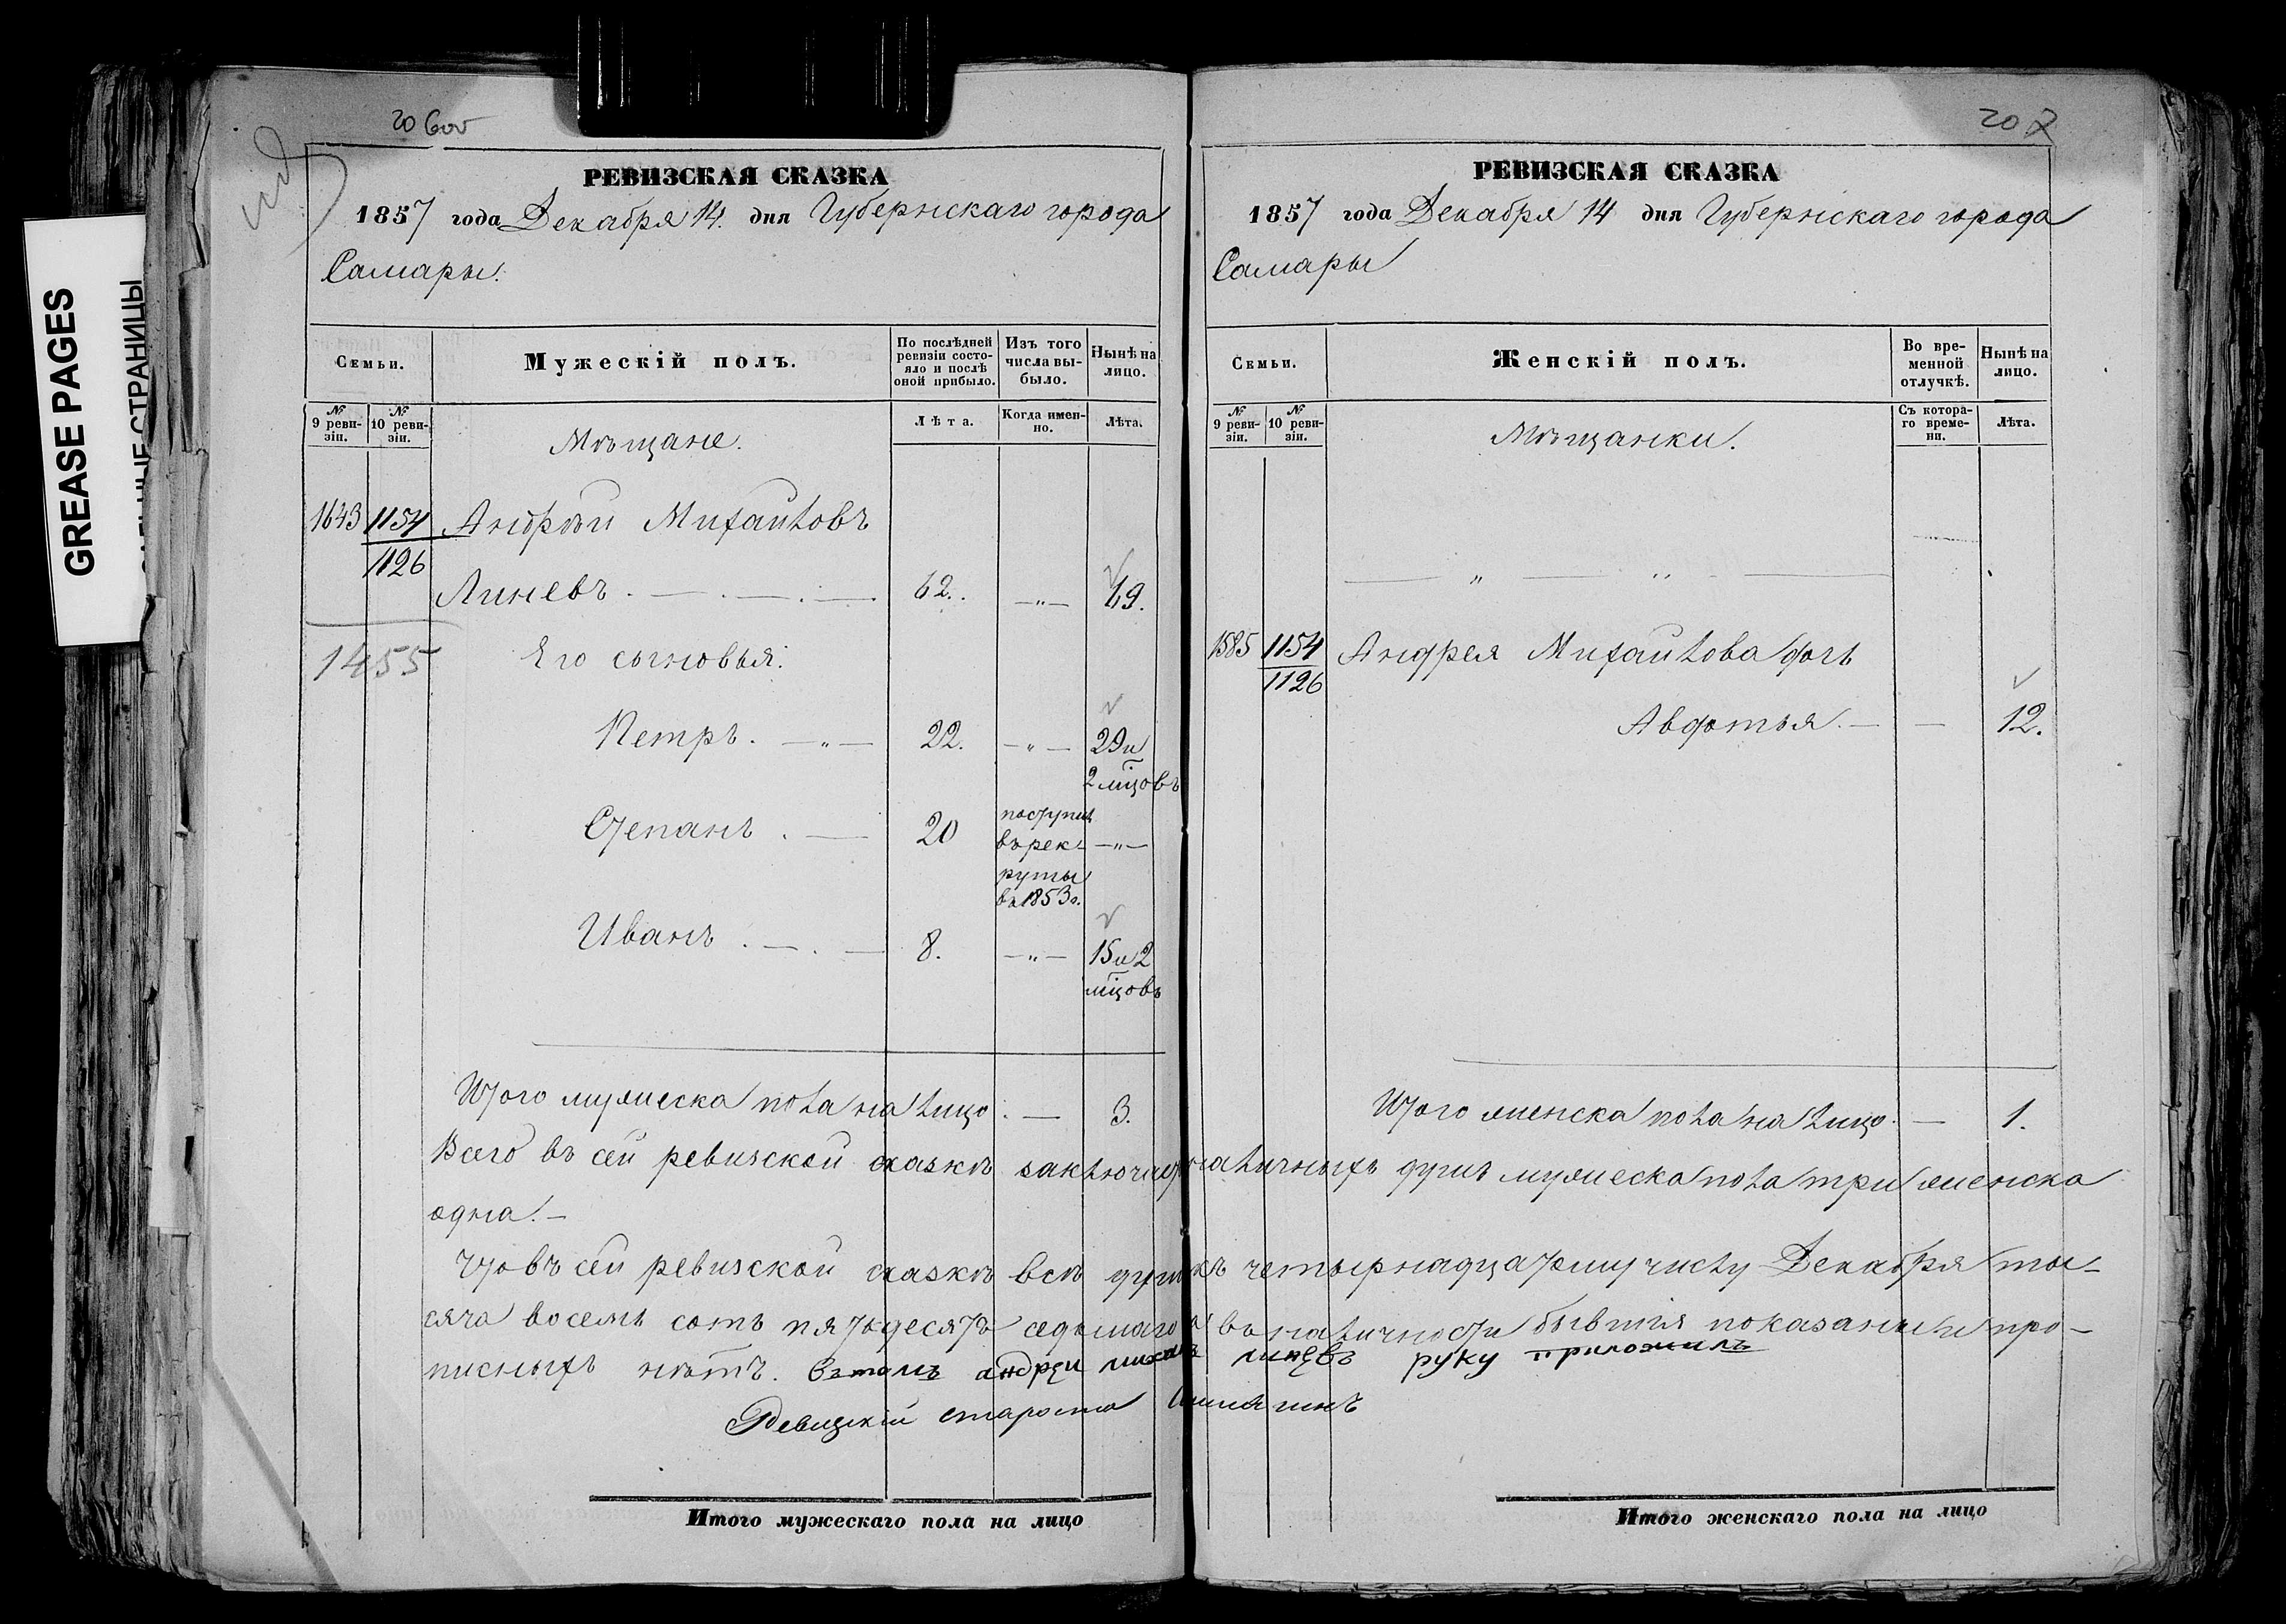 GREASE PAGES
САЛЬНЫЕ СТРАНИЦЫ
206 об
РЕВИЗСКАЯ СКАЗКА
1857 года Декабря 14. дня Губернскаго города
Самары.
Семьи.
Мужескій полъ.
По послѣдней ревизіи состо-
яло и послѣ
оной прибыло.
Изъ того
числа вы-
было.
Нынѣ на
лицо.
№ 9 реви-
зіи.
№ 10 реви-
зіи.
Мѣщане.
Лѣта.
Когда имен-
но.
Лѣта.
1643 1154 Андрѣй Михайловъ
1126
Линевъ. 62. —„— 69.
1455
Его сыновья:
Петръ. —„— 22. —„— 29 и
2 мцовъ
Степанъ. 20 поступилъ
въ рек- —„—
руты
въ 1853 г.
Иванъ. 8. —„— 15 и 2
мцовъ
Итого мужеска пола на лицо. — 3.
207
РЕВИЗСКАЯ СКАЗКА
1857 года Декабря 14 дня Губернскаго города
Самары
Семьи.
Женскій полъ.
Во вре-
менной
отлучкѣ.
Нынѣ на
лицо.
№ 9 реви-
зіи.
№ 10 реви-
зіи.
Мѣщанки.
Съ котора-
го време-
ни.
Лѣта.
— „ — „ —
1585 1154 Андрея Михайлова дочь
1126
Авдотья. — — 12.
Итого женска пола на лицо. — 1.
Всего въ сей ревизской сказкѣ заключается наличныхъ душъ мужеска пола три женска
одна. —
Что въ сей ревизской сказкѣ всѣ души къ четырнадцатому числу Декабря ты-
сяча восемь сотъ пятьдесятъ седьмаго въ наличности бывшія показаны и про-
писныхъ нѣтъ. Вътомъ андреи михаила линевъ руку приложилъ
Ревизскій староста
Итого мужескаго пола на лицо
Итого женскаго пола на лицо